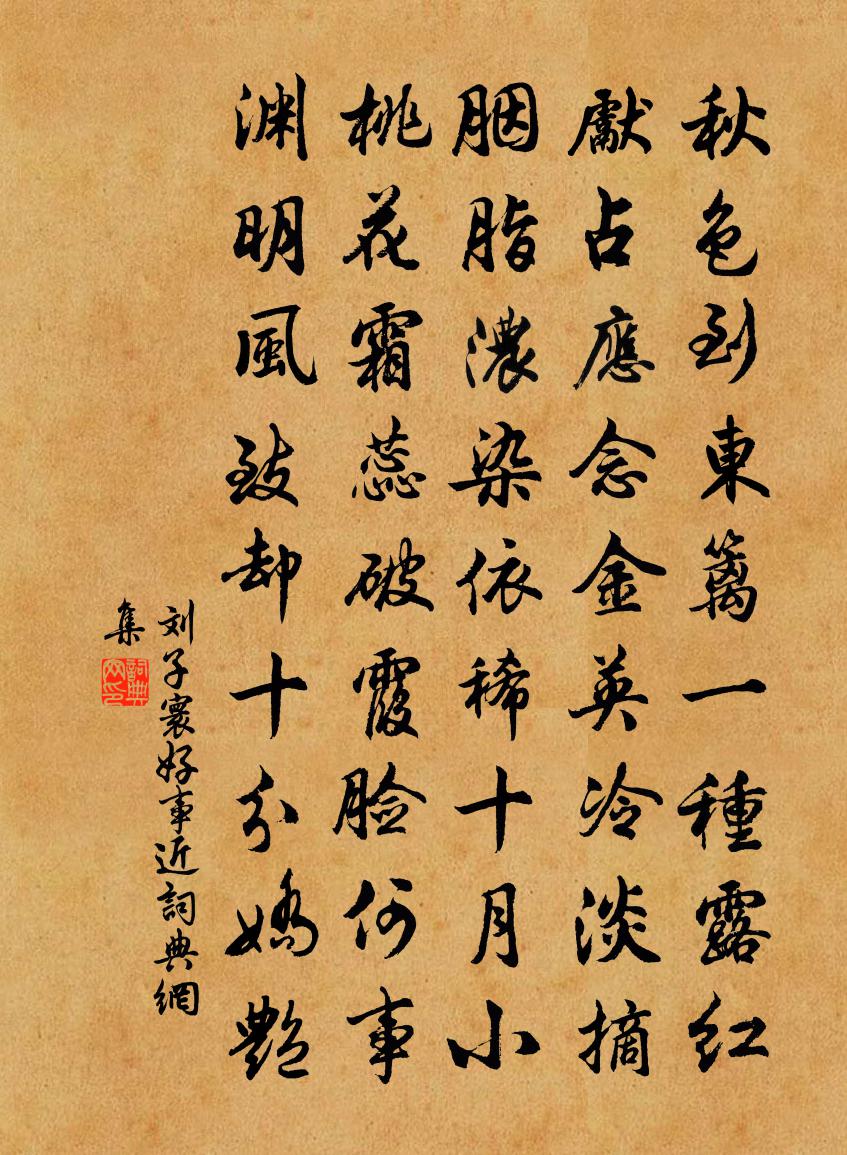 秋色到東篱一種露红
獻占應念金英冷淡摘
胭脂濃染依稀十月小
桃花霜蕊破霞脸何事
淵明風致却十分嬌艷
刘子寰好事近詞典網
集
詞典网印